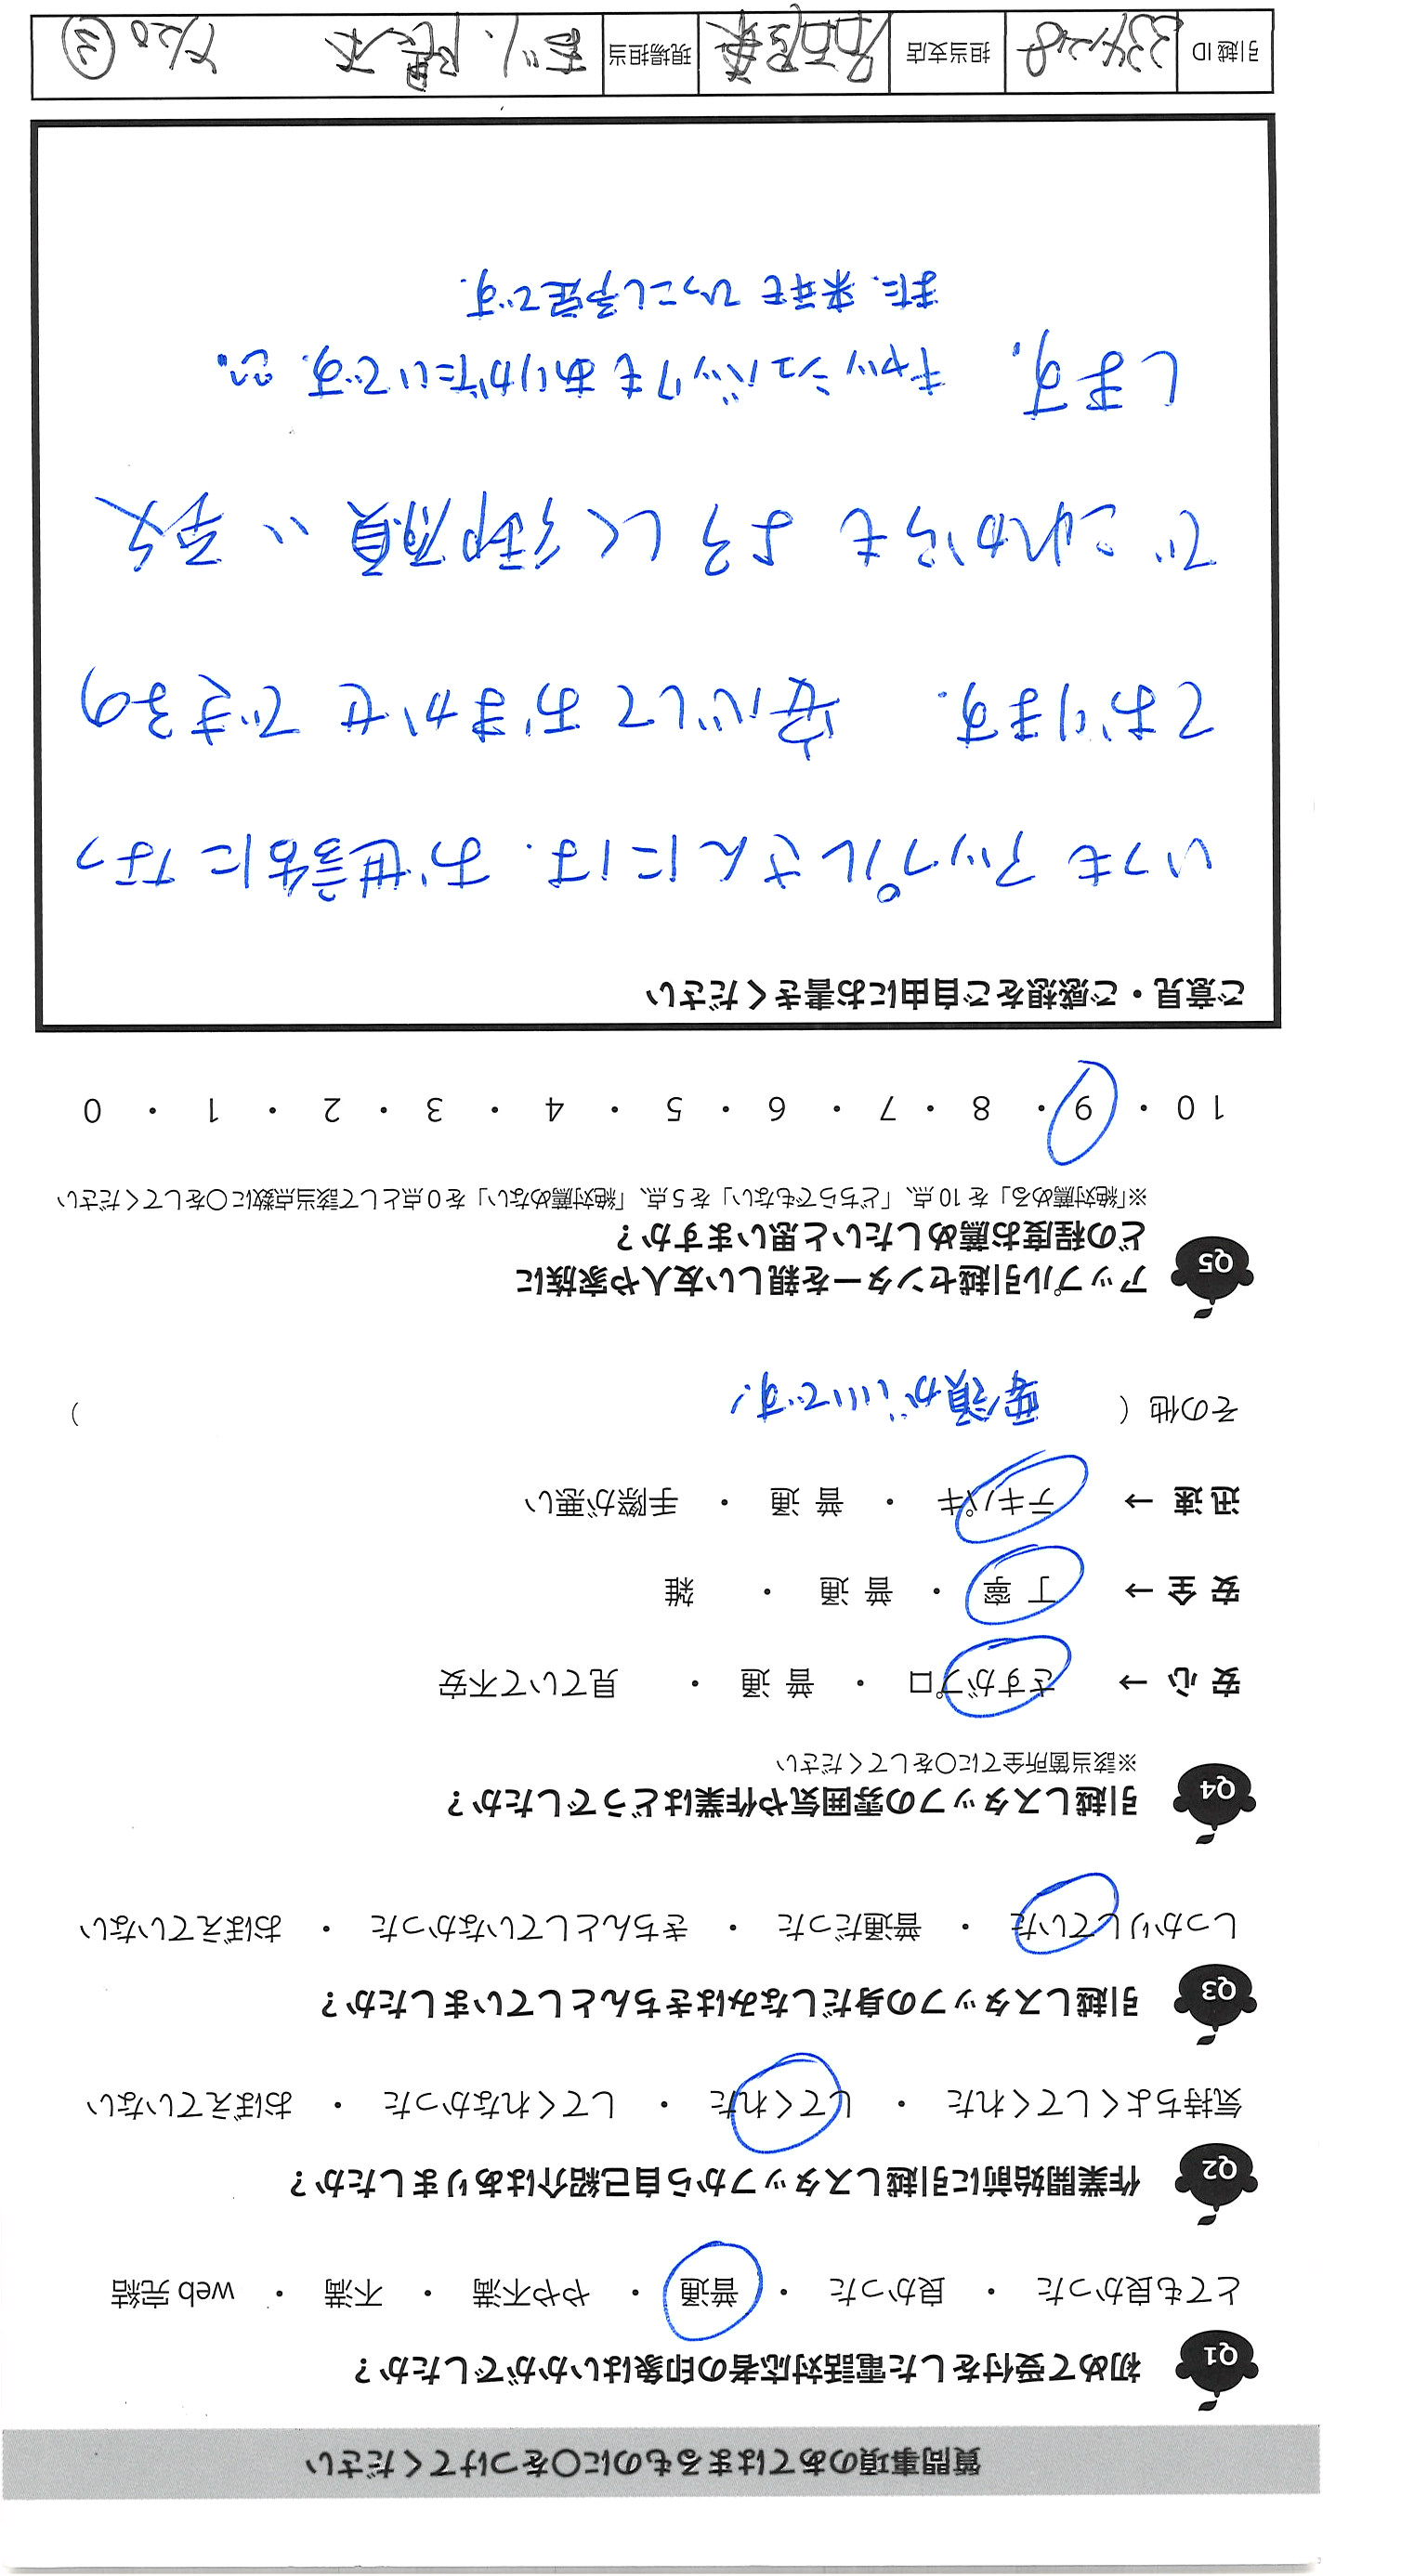 質問事項のあてはまるものに○をつけてください
Q1 初めて受付をした電話対応者の印象はいかがでしたか？
とても良かった ・ 良かった ・ 普通 ・ やや不満 ・ 不満 ・ web 完結
Q2 作業開始前に引越しスタッフから自己紹介はありましたか？
気持ちよくしてくれた ・ してくれた ・ してくれなかった ・ おぼえていない
Q3 引越しスタッフの身だしなみはきちんとしていましたか？
しっかりしていた ・ 普通だった ・ きちんとしていなかった ・ おぼえていない
Q4 引越しスタッフの雰囲気や作業はどうでしたか？
※該当箇所全てに○をしてください
安 心 → さすがプロ ・ 普 通 ・ 見ていて不安
安 全 → 丁 寧 ・ 普 通 ・ 雑
迅 速 → テキパキ ・ 普 通 ・ 手際が悪い
その他（ 要領がいいです! ）
Q5 アップル引越センターを親しい友人や家族に
どの程度お薦めしたいと思いますか？
※「絶対薦める」を 10 点、「どちらでもない」を 5 点、「絶対薦めない」を 0 点として該当点数に○をしてください
10 ・ 9 ・ 8 ・ 7 ・ 6 ・ 5 ・ 4 ・ 3 ・ 2 ・ 1 ・ 0
ご意見・ご感想をご自由にお書きください
いつも アップルさんには、お世話になっ
ております。 安心して おまかせ できるの
で これからも よろしく 御願い 致
します。 キャッシュバックも ありがたいです。^^
また、来年も ひっこし予定です。
引越 ID 担当支店 名古屋東 現場担当 7/20 ③